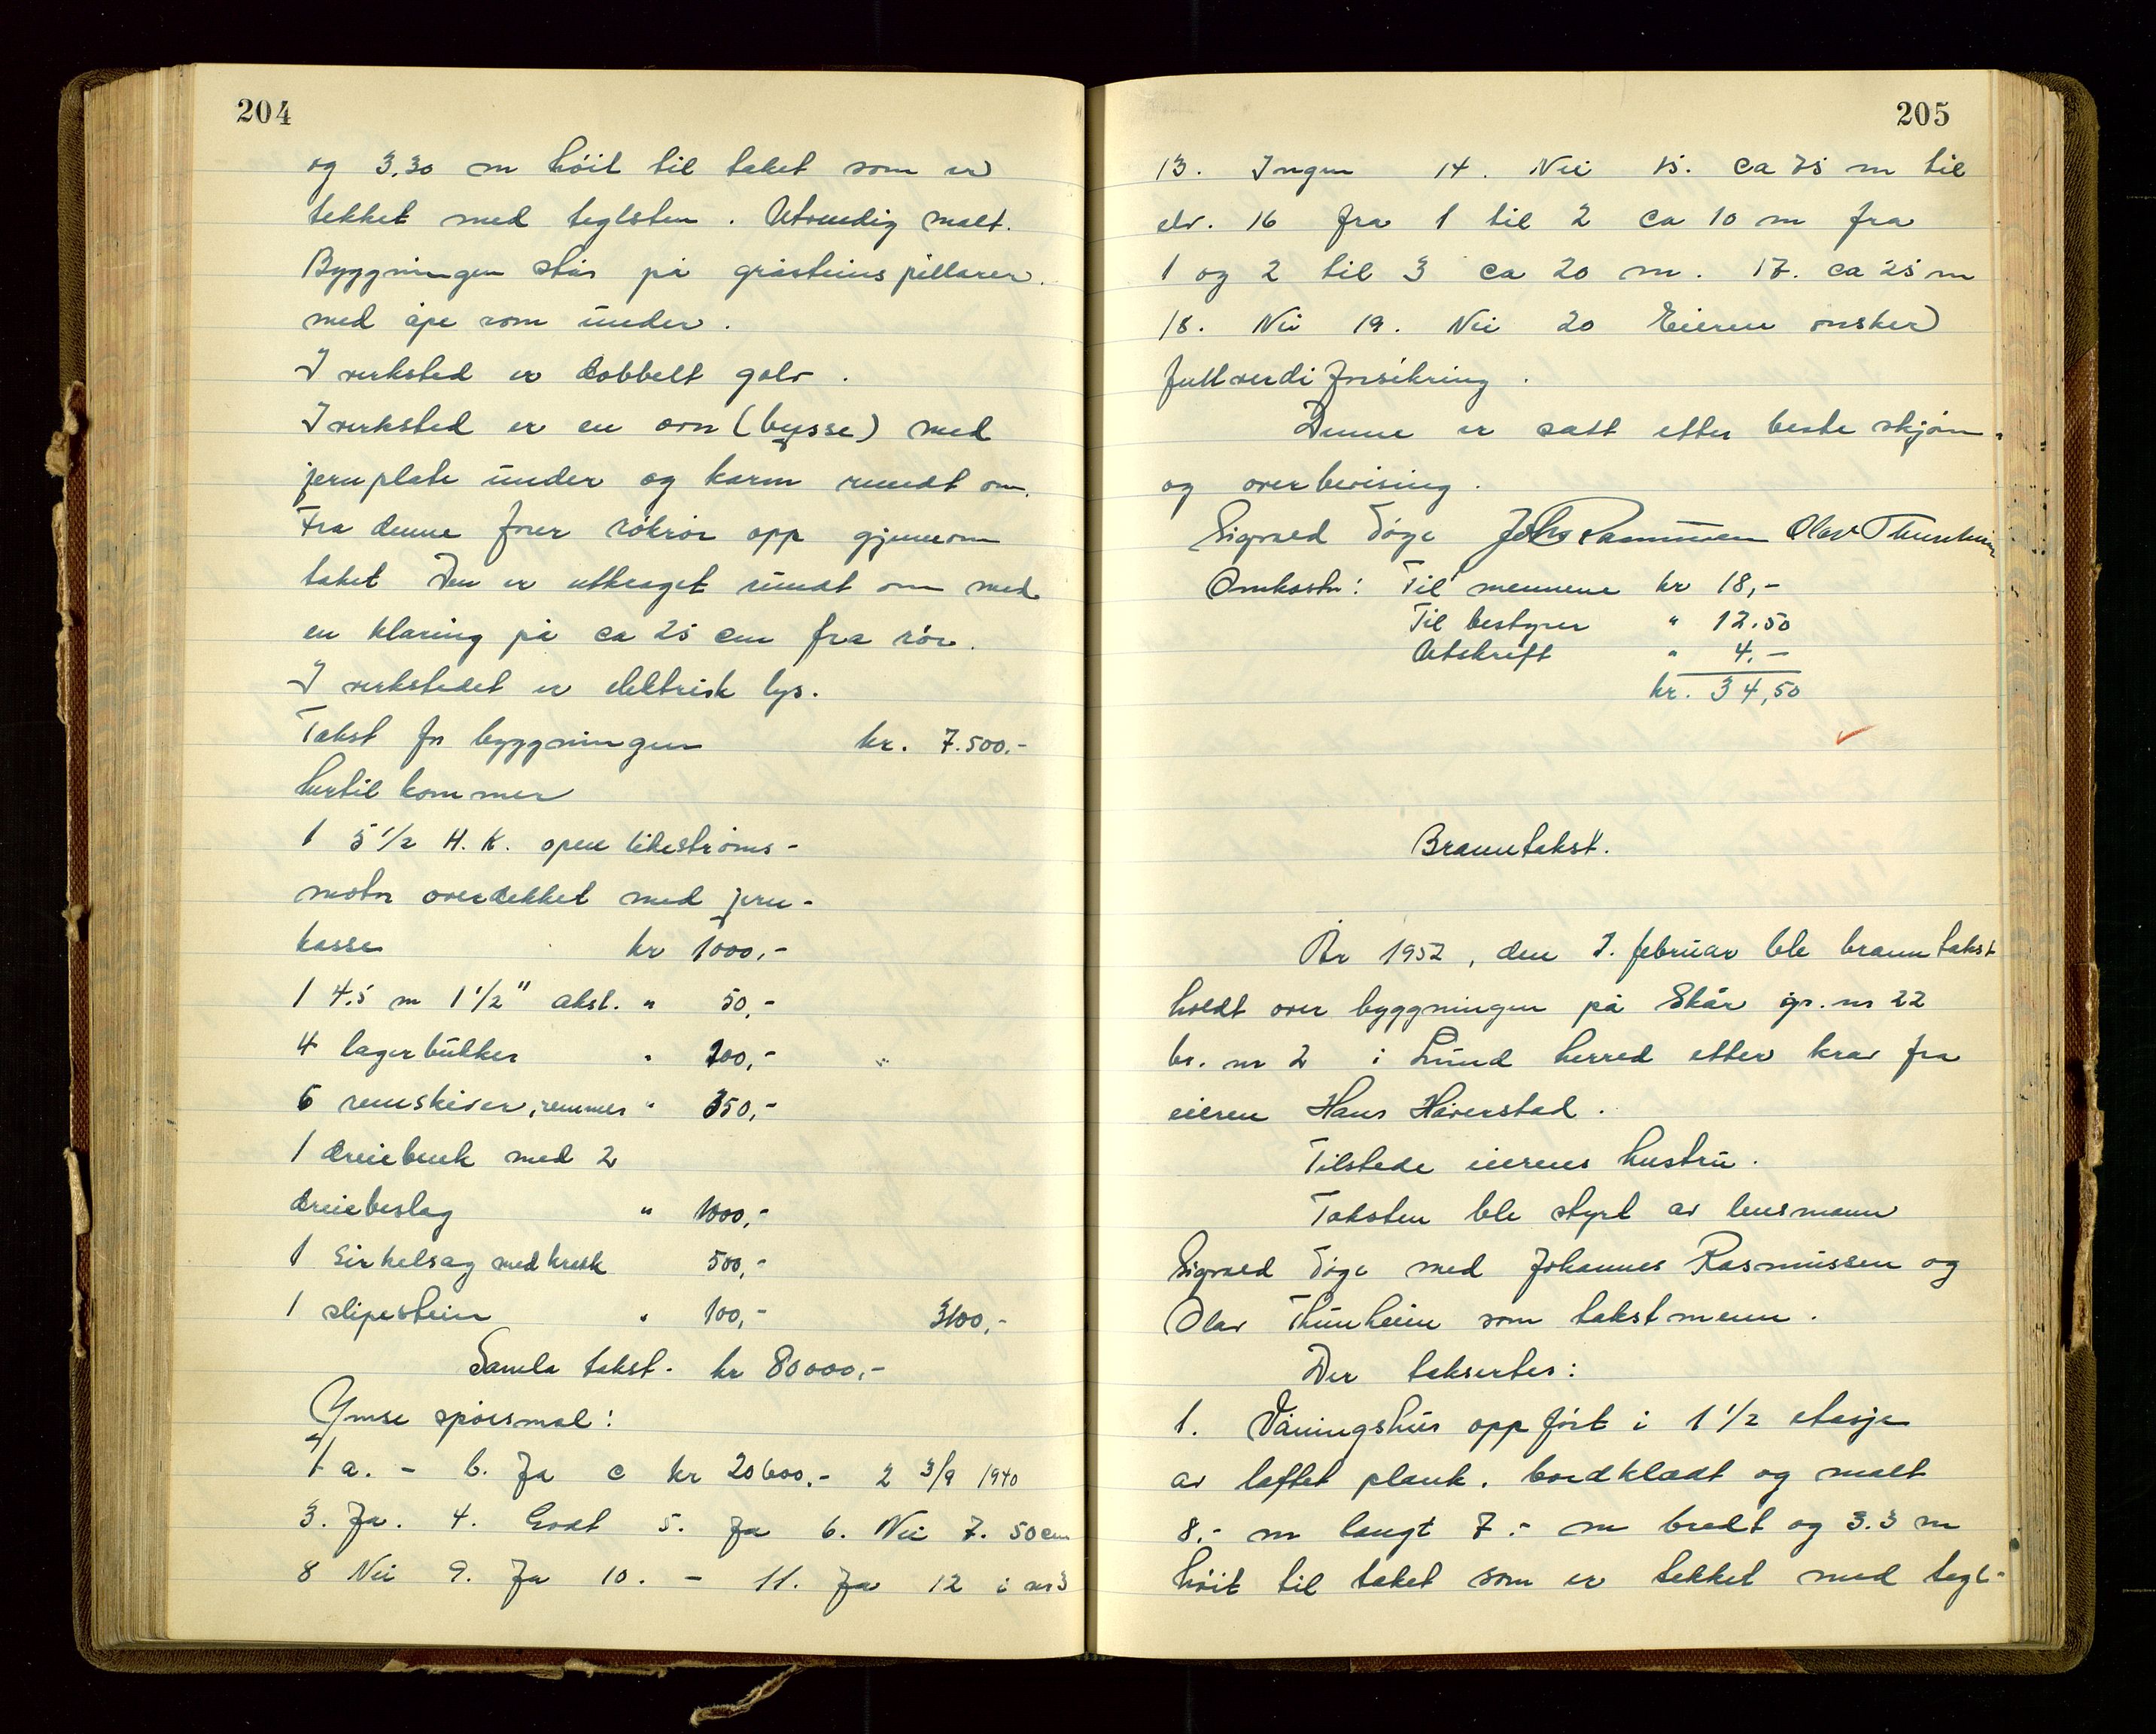 204
og 3.30 m höit til taket som er
tekket med teglsten. Utvendig malt.
Byggningen står på gråsteinspillarer.
med åpe rom under.
I verksted er dobbelt golv.
I verksted er en ovn (bysse) med
jernplate under og karm rundt om.
Fra denne förer rökrör opp gjennom
taket Den er utkraget rundt om med
en klaring på ca 25 cm fra rör.
I verkstedet er elektrisk lys.
Takst for byggningen kr. 7.500.-
hertil kommer
1 5 1/2 H. K. open likeströms-
motor overdekket med jern-
kasse kr 1000,-
1 4.5 m 1 1/2" aksl. " 50,-
4 lagerbukker " 100,-
6 remskiver, remmer " 350,-
1 dreiebenk med 2
dreiebeslag " 1000,-
1 Sirkelsag med kresk 500,-
1 slipestein " 100,- 3100,-
Samla takst. kr 80000,-
Ymse spörsmål:
1 a. - b. Ja c kr 20600.- 2 3/9 1940
3. Ja. 4. Godt 5. Ja 6. Nei 7. 50 cm
8 Nei 9. Ja 10. - 11. Ja 12 i nr 3
205
13. Ingen 14. Nei 15. ca 75 m til
elv. 16 fra 1 til 2 ca 10 m fra
1 og 2 til 3 ca 20 m. 17. ca 25 m
18. Nei 19. Nei 20 Eieren önsker
fullverdi forsikring.
Denne er satt etter beste skjön.
og overbevising.
Sigvald Töge Johs Rasmussen Olav Thunheim
Omkostn: Til mennene kr 18,-
Til bestyrer " 12.50
Utskrift " 4.-
kr. 34,50
Branntakst.
År 1952, den 7. februar ble branntakst
holdt over byggningen på Skår gr. nr 22
br. nr 2 i Lund herred etter krav fra
eieren Hans Håverstad.
Tilstede eierens hustru.
Taksten ble styrt av lensmann
Sigvald Töge med Johannes Rasmussen og
Olav Thunheim som takstmenn.
Der taksertes:
1. Våningshus oppfört i 1 1/2 etasje
av laftet plank. bordklædt og malt
8.- m langt 7.- m bredt og 3.3 m
höit til taket som er tekket med tegl-